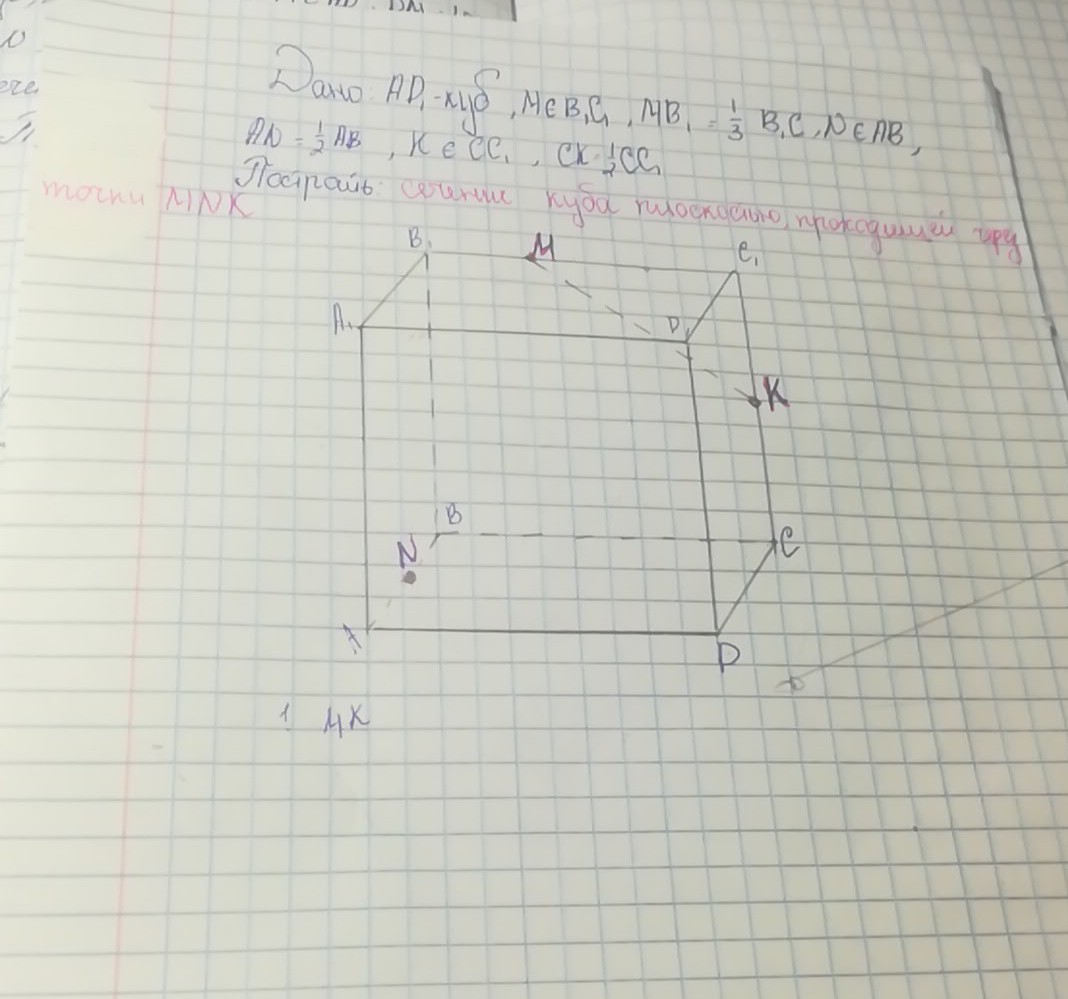 Дано: AD₁-куб, M∈B₁C₁, MB₁ = 1/3 B₁C, N∈AB,
AN = 1/2 AB, K∈CC₁, CK = 1/2 CC₁
Построить: сечение куба плоскостью, проходящей чрз
точки MNK
B₁ M C₁
A₁ D₁
K
B
N C
A D
1 MK